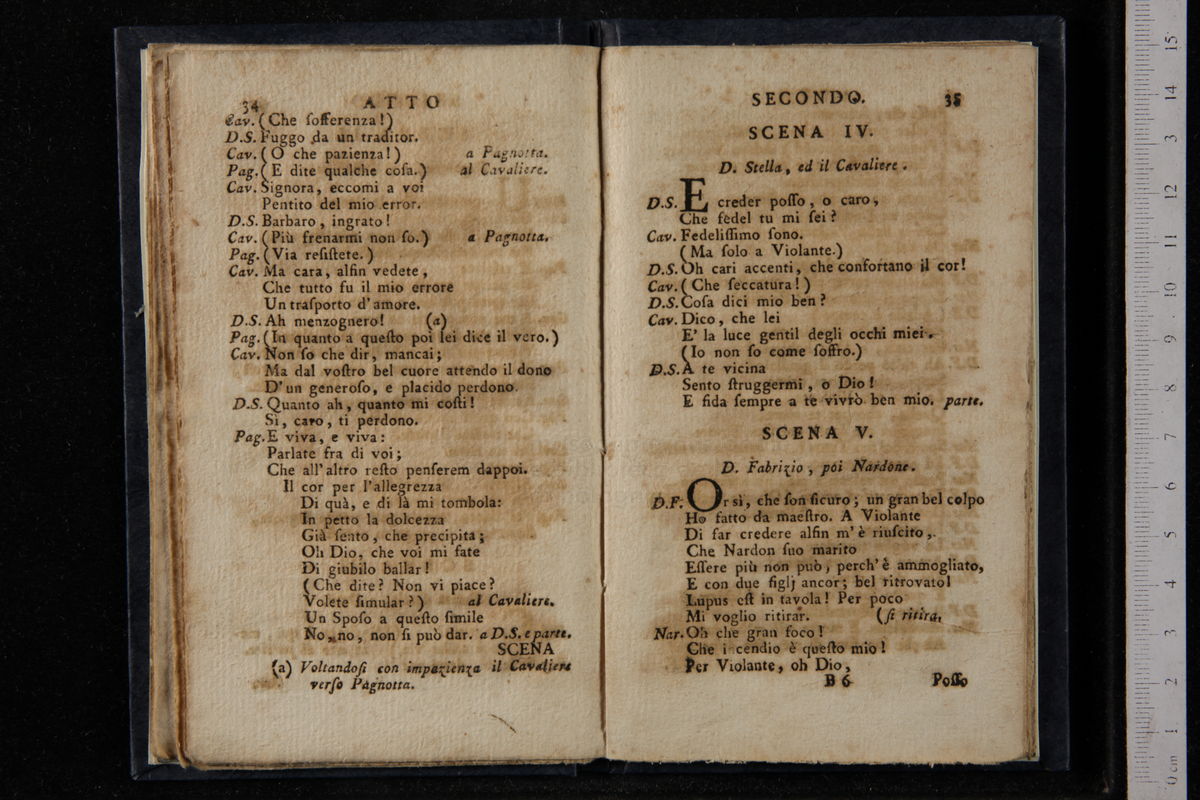 34 ATTO
Cav. (Che ſofferenza!)
D.S. Fuggo da un traditor.
Cav. (O che pazienza!) a Pagnotta.
Pag. (E dite qualche coſa.) al Cavaliere.
Cav. Signora, eccomi a voi
Pentito del mio error.
D.S. Barbaro, ingrato!
Cav. (Più frenarmi non ſo.) a Pagnotta.
Pag. (Via reſiſtete.)
Cav. Ma cara, alfin vedete,
Che tutto fu il mio errore
Un traſporto d'amore.
D.S. Ah menzognero! (a)
Pag. (In quanto a queſto poi lei dice il vero.)
Cav. Non ſo che dir, mancai;
Ma dal voſtro bel cuore attendo il dono
D'un generoſo, e placido perdono.
D.S. Quanto ah, quanto mi coſti!
Sì, caro, ti perdono.
Pag. E viva, e viva:
Parlate fra di voi;
Che all'altro reſto penſerem dappoi.
Il cor per l'allegrezza
Di quà, e di là mi tombola:
In petto la dolcezza
Già ſento, che precipita;
Oh Dio, che voi mi fate
Di giubilo ballar!
(Che dite? Non vi piace?
Volete ſimular?) al Cavaliere.
Un Spoſo a queſto ſimile
No, no, non ſi può dar. a D.S. e parte.
SCENA
(a) Voltandoſi con impazienza il Cavaliere
verſo Pagnotta.
SECONDO. 35
SCENA IV.
D. Stella, ed il Cavaliere.
D.S. E creder poſſo, o caro,
Che fedel tu mi ſei?
Cav. Fedeliſſimo ſono.
(Ma ſolo a Violante.)
D.S. Oh cari accenti, che confortano il cor!
Cav. (Che ſeccatura!)
D.S. Coſa dici mio ben?
Cav. Dico, che lei
E' la luce gentil degli occhi miei.
(Io non ſo come ſoffro.)
D.S. A te vicina
Sento ſtruggermi, o Dio!
E fida ſempre a te vivrò ben mio. parte.
SCENA V.
D. Fabrizio, poi Nardone.
D.F. Or sì, che ſon ſicuro; un gran bel colpo
Ho fatto da maeſtro. A Violante
Di far credere alfin m'è riuſcito,
Che Nardon ſuo marito
Eſſere più non può, perch'è ammogliato,
E con due figlj ancor; bel ritrovato!
Lupus eſt in tavola! Per poco
Mi voglio ritirar. (ſi ritira,
Nar. Oh che gran foco!
Che i cendio è queſto mio!
Per Violante, oh Dio,
B 6 Poſſo
15
14
3
12
11
10
9
8
7
6
5
4
3
2
1
0 cm